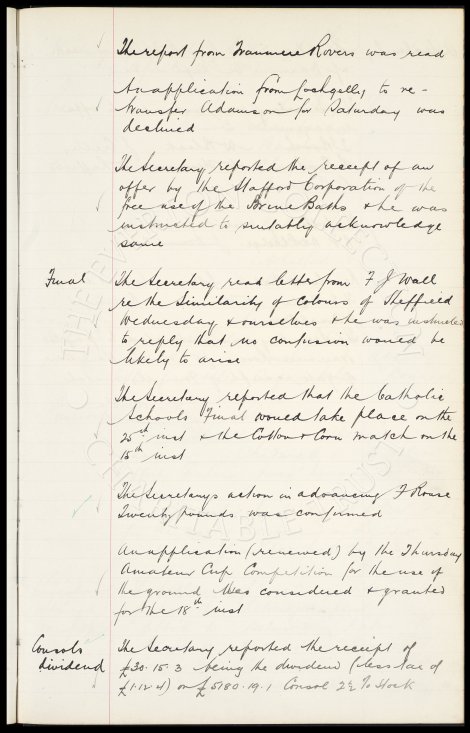 The report from Tranmere Rovers was read
An application from Lochgelly to re-
transfer Adamson for Saturday was
declined
The Secretary reported the receipt of an
offer by the Stafford Corporation of the
free use of the Brine Baths & he was
instructed to suitably acknowledge
same
Final
The Secretary read letter from F J Wall
re the Similarity of colours of Sheffield
Wednesday & ourselves & he was instructed
to reply that no confusion would be
likely to arise
The Secretary reported that the Catholic
Schools Final would take place on the
25th inst & the Cotton & Corn match on the
15th inst
The Secretarys action in advancing F Rouse
Twenty pounds was confirmed
An application (renewed) by the Thursday
Amateur Cup Competition for the use of
the ground was considered & granted
for the 18th inst
Consols
dividend
The Secretary reported the receipt of
£30.15.3 being the dividend (less tax of
£1.12.4) on £5180.19.1 Consol 2½ % Stock
THE EVERTON
COLLECTION
CHARITABLE TRUST